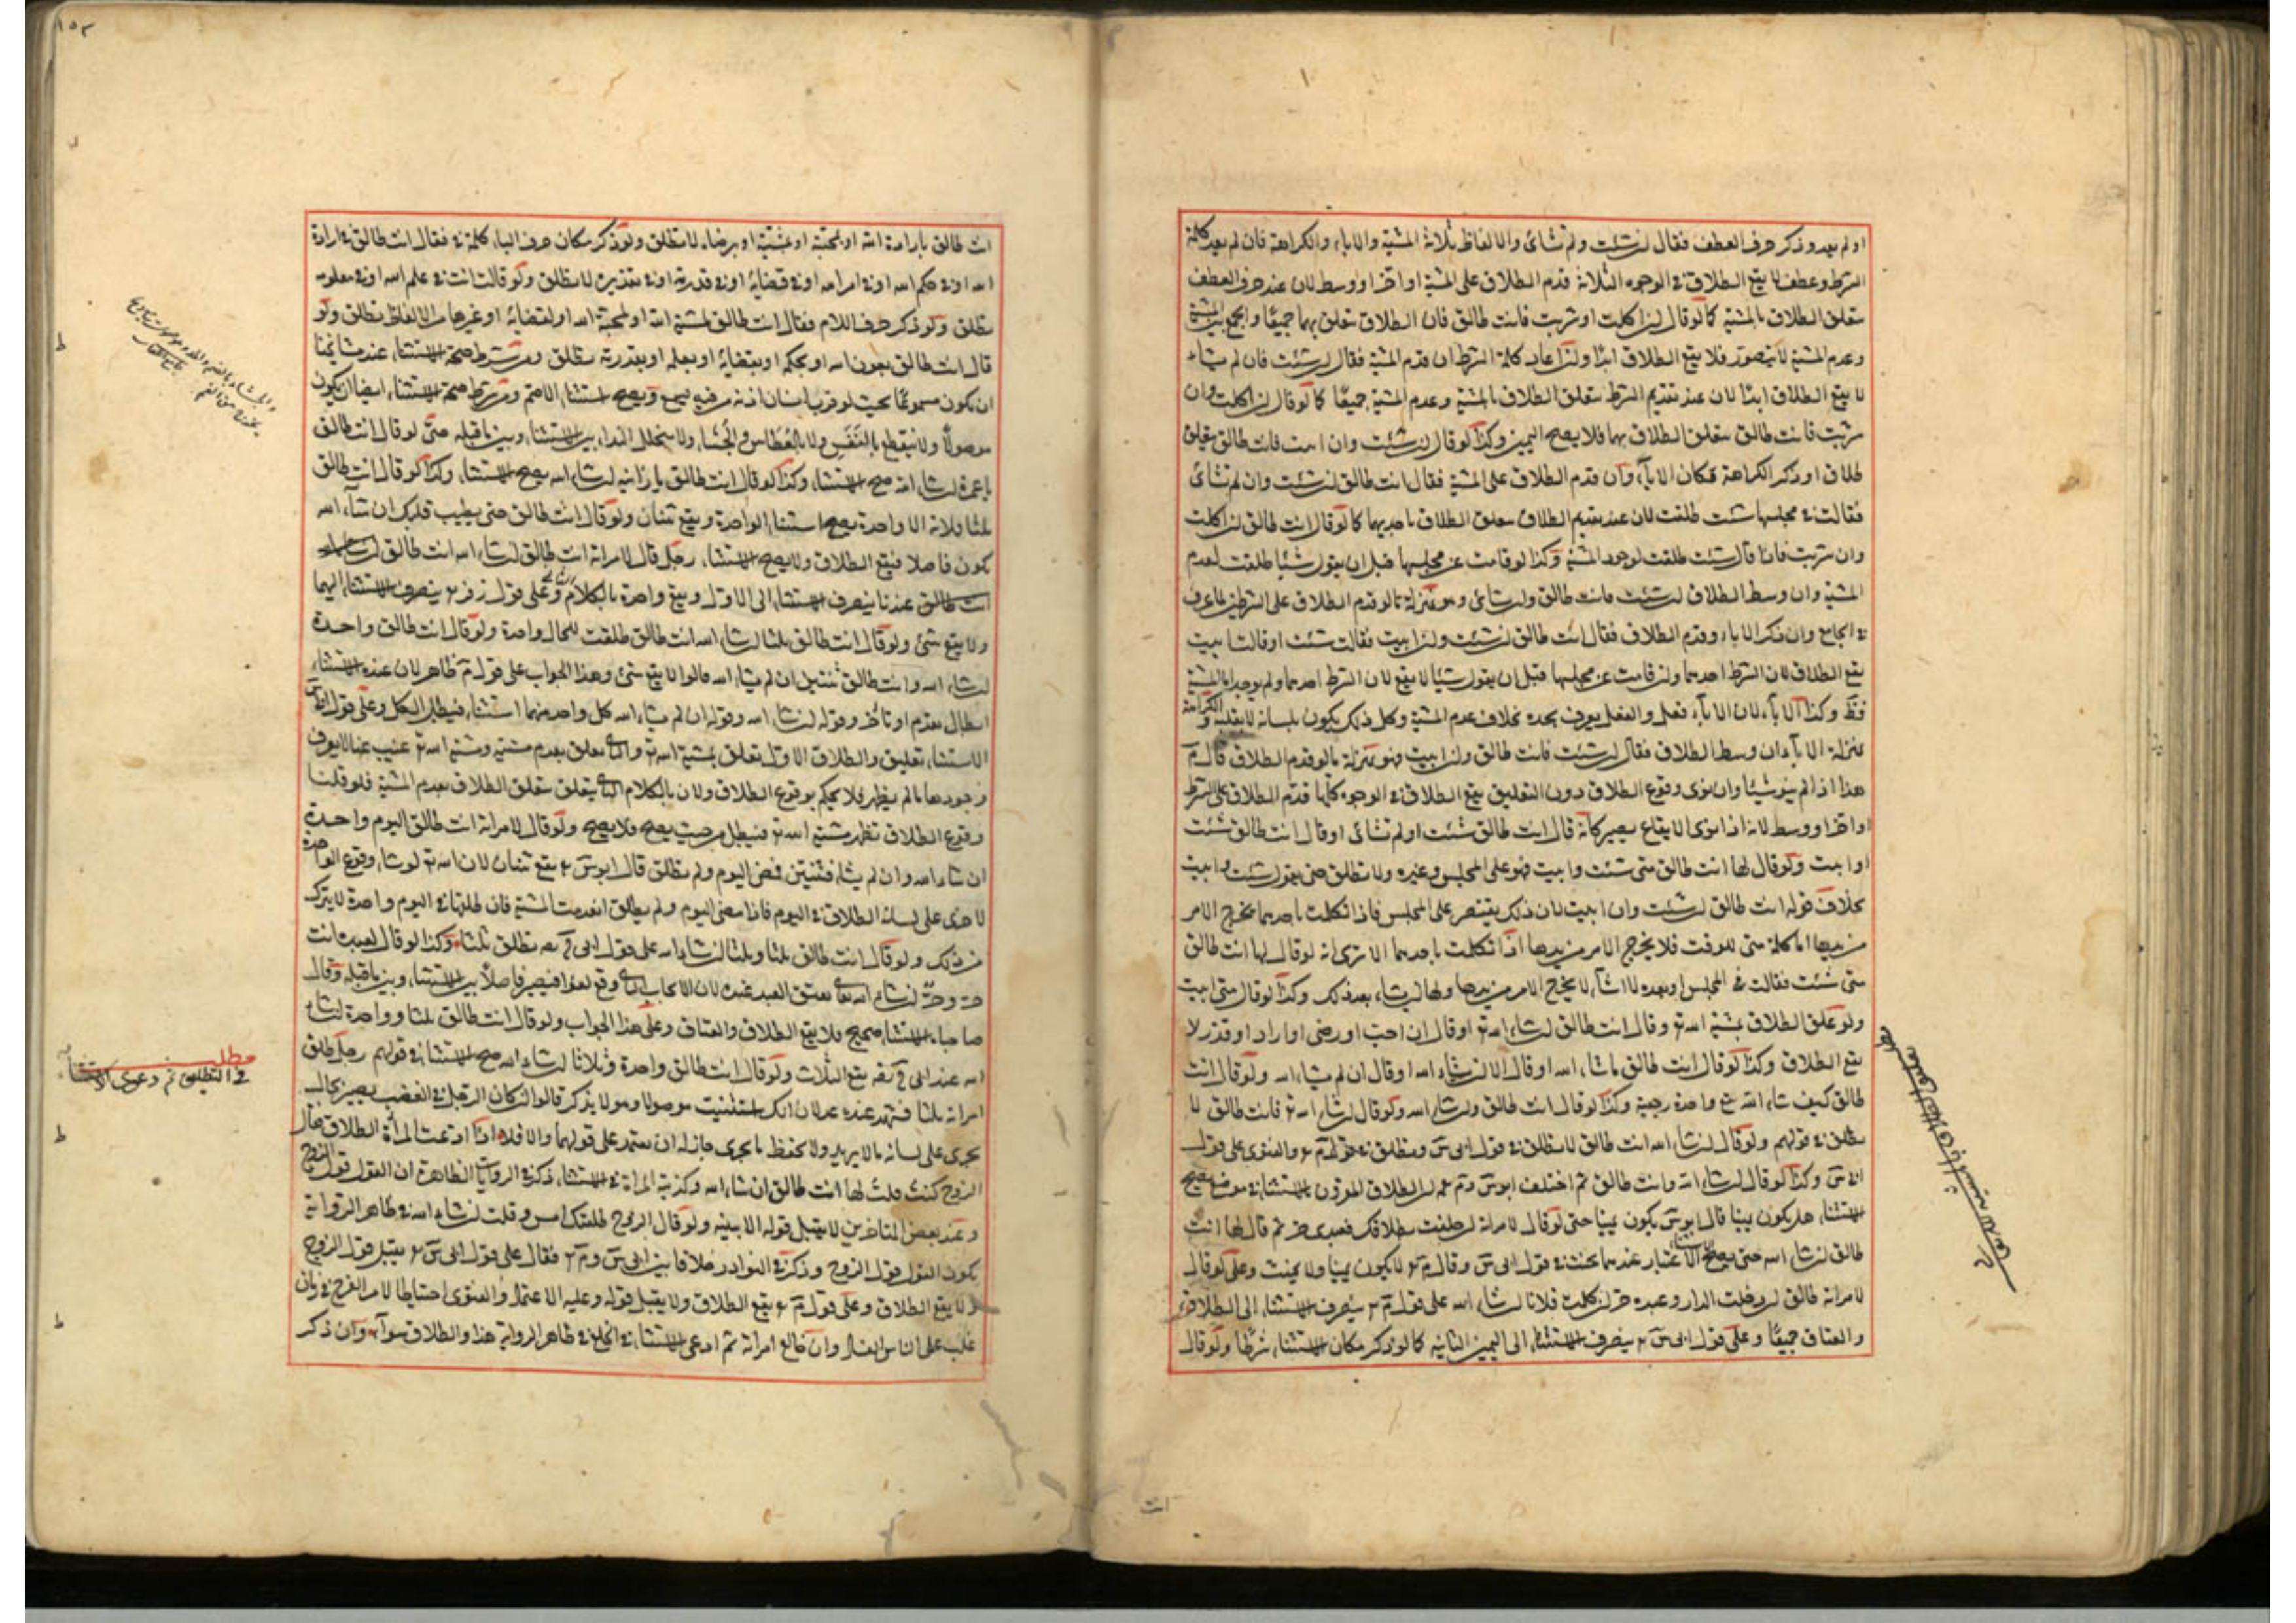 او لم يعد وذكر حرف العطف فقال ان شئت ولم تشائى والالفاظ ثلاثة المشية والاباء والكراهة فان لم يعد كلمة
الشرط وعطف لا يقع الطلاق فى الوجوه الثلاثة قدم الطلاق على المشية او اخر او وسط لان عند حرف العطف
يتعلق الطلاق بالمشية كما لو قال ان اكلت او شربت فانت طالق فان الطلاق يتعلق بهما جميعًا والجمع بين المشية
وعدم المشية لا يتصور فلا يقع الطلاق ابدًا ولو اعاد كلمة الشرط ان قدم المشية فقال ان شئت فان لم تشاء
لا يقع الطلاق ابدًا لان عند تقديم الشرط يتعلق الطلاق بالمشية وعدم المشية جميعًا كما لو قال ان اكلت وان
شربت فانت طالق يتعلق الطلاق بهما فلا يصح اليمين وكذا لو قال ان شئت وان ابيت فانت طالق
طلاق او ذكر الكراهة مكان الاباء وان قدم الطلاق على المشية فقال انت طالق ان شئت وان لم تشائى
فقالت فى مجلسها شئت طلقت لان عند تقديم الطلاق يتعلق الطلاق باحديهما كما لو قال انت طالق ان اكلت
وان شربت فاذا قال شئت طلقت لوجود المشية وكذا لو قامت عن مجلسها قبل ان يقول شيئًا طلقت لعدم
المشية وان وسط الطلاق ان شئت فانت طالق وان تشائى وهو بمنزلة ما لو قدم الطلاق على الشرطين لما عرف
فى الجامع وان ذكر الاباء وقدم الطلاق فقال انت طالق ان شئت وان ابيت فقالت شئت او قالت ابيت
يقع الطلاق لان الشرط احدهما وان قامت عن مجلسها قبل ان يقول شيئا لا يقع لان الشرط احدهما ولم يوجد اما المشية
فظ وكذا الاباء لان الاباء فعل والفعل يعرف بحده بخلاف عدم المشية وكل ذلك يكون بلسانه لا بقلبه والكراهة
بمنزلة الاباء وان وسط الطلاق فقال ان شئت فانت طالق وان ابيت فهو بمنزلة ما لو قدم الطلاق قال م
هذا اذا لم ينو شيئا وان نوى وقوع الطلاق دون التعليق يقع الطلاق فى الوجوه كلها قدم الطلاق على الشرط
او اخر او وسط لانه اذا نوى الايقاع يصير كانه قال انت طالق شئت او لم تشائى او قال انت طالق شئت
او ابيت ولو قال لها انت طالق متى شئت وابيت فهو على المجلس وغيره ولا تطلق حتى يقول شئت وابيت
بخلاف قوله انت طالق ان شئت وان ابيت لان ذلك يقتصر على المجلس فاذا تكلمت باحدهما يخرج الامر
من يدها اما كلمة متى للوقت فلا يخرج الامر من يدها اذا تكلمت باحدهما الا ترى انه لو قال لها انت طالق
متى شئت فقالت فى المجلس او بعده لا اشاء لا يخرج الامر من يدها ولها ان تشاء بعد ذلك وكذا لو قال متى ابيت
ولو علق الطلاق بمشية الله تع وقال انت طالق ان شاء الله تع او قال ان احب او رضى او اراد او قدر لا
يقع الطلاق وكذا لو قال انت طالق ما شاء الله او قال الا ان شاء الله او قال ان لم يشاء الله ولو قال انت
طالق كيف شاء الله تقع واحدة رجعية وكذا لو قال انت طالق وان شاء الله ولو قال ان شاء الله تع فانت طالق لا
يطلق فى قولهم ولو قال ان شاء الله انت طالق لا يطلق فى قول ابى س ويطلق فى قول م والفتوى على قول
ابى س وكذا لو قال ان شاء الله وانت طالق ثم اختلف ابو س وم ان الطلاق المقرون بالاستثناء فى موضع يصح
الاستثناء هل يكون يمينا قال ابو س يكون يمينا حتى لو قال لامراته ان حلفت بطلاقك فعبدى حر ثم قال لها انت
طالق ان شاء الله حتى يصح الاعتبار عندهما يحنث فى قول ابى س وقال م لا يكون يمينا ولا يحنث وعلى لو قال
لامراته طالق ان دخلت الدار وعبده حر ان كلمت فلانا ان شاء الله على قول م ينصرف الاستثناء الى الطلاق
والعتاق جميعًا وعلى قول ابى س ينصرف الاستثناء الى اليمين الثانيه كما لو ذكر مكان الاستثناء شرطا ولو قال
انت
تعليق الطلاق بالمشية
١٥٣
انت طالق بارادة الله او بمحبته او بمشيته او برضاه لا يطلق ولو ذكر مكان حرف الباء كلمة فى فقال انت طالق فى ارادة
الله او فى حكم الله او فى امر الله او فى قضائه او فى قدرته او فى تقديره لا يطلق ولو قال انت فى علم الله او فى معلومه
يطلق ولو ذكر حرف اللام فقال انت طالق لمشية الله او لمحبة الله او لقضائه او غيرها من الالفاظ يطلق ولو
قال انت طالق بعون الله او بحكم او بقضائه او بعلمه او بقدرته يطلق ومن شرط صحة الاستثناء عند مشايخنا
ان يكون مسموعًا بحيث لو قرب انسان اذنه من فيه يسمع ويصح استثناء الاصم ومن شرط صحة الاستثناء ايضا ان يكون
موصولًا ولا ينقطع بالتنفس ولا بالعطاس والجشاء ولا يتخلل النداء بين الاستثناء وبين ما قبله حتى لو قال انت طالق
يا عمرة ان شاء الله صح الاستثناء وكذا لو قال انت طالق يا زانيه ان شاء الله يصح الاستثناء وكذا لو قال انت طالق
ثلثا فلانه الا واحدة يصح استثناء الواحدة ويقع ثنتان ولو قال انت طالق حتى يطيب قلبك ان شاء الله
يكون فاصلا فيقع الطلاق ولا يصح الاستثناء رجل قال لامراته انت طالق ان شاء الله انت طالق
انت طالق عندنا ينصرف الاستثناء الى الاول ويقع واحدة بالكلام الثانى وعلى قول زفر ينصرف الاستثناء اليهما
ولا يقع شئ ولو قال انت طالق ثلثا ان شاء الله انت طالق طلقت للحال واحدة ولو قال انت طالق واحدة
ان شاء الله وانت طالق ثنتين ان لم يشاء الله قالوا لا يقع شئ وهذا الجواب على قول م ظاهر لان عنده الاستثناء
ابطال تقدم او تاخر وقوله ان شاء الله وقوله ان لم يشاء الله كل واحد منهما استثناء فيبطل الكل وعلى قول ابى س
الاستثناء تعليق والطلاق الاول تعلق بمشية الله تع والثانى تعلق بعدم مشيته ومشية الله تع غيب عنا لا يعرف
وجودها ما لم يظهر فلا يحكم بوقوع الطلاق ولان بالكلام الثانى يتعلق الطلاق بعدم المشية فلو قلنا
وقوع الطلاق تظهر مشية الله تع فيبطل من حيث يصح فلا يصح ولو قال لامراته انت طالق اليوم واحدة
ان شاء الله وان لم يشاء فثنتين فمضى اليوم ولم يطلق قال ابو س يقع ثنتان لان الله تع لو شاء وقوع الواحدة
لاجرى على لسانه الطلاق فى اليوم فاذا مضى اليوم ولم يطلق انعدمت المشية فان طلقها فى اليوم واحدة لا يترك
من ذلك ولو قال انت طالق ثلثا وثلثا ان شاء الله على قول ابى ح يطلق ثلثا وكذا لو قال لعبده انت
حر وحر ان شاء الله يعتق العبد عنده لان الايجاب الثانى وقع لغوا فيصير فاصلًا بين الاستثناء وبين ما قبله وقال
صاحباه الاستثناء صحيح فلا يقع الطلاق والعتاق وعلى هذا الجواب ولو قال انت طالق ثلثا وواحدة ان شاء
الله عند ابى ح يقع الثلاث ولو قال انت طالق واحدة وثلاثا ان شاء الله صح الاستثناء فى قولهم رجل طلق
امراته ثلثا فشهد عنده عدلان انك استثنيت موصولا وهو لا يذكر قالوا ان كان الرجل فى الغضب يصير بحال
يجرى على لسانه ما لا يريد ولا يحفظ ما يجرى جاز له ان يعتمد على قولهما والا فلا اذا ادعت المرأة الطلاق فقال
الزوج كنت قلت لها انت طالق ان شاء الله وكذبته المراة فى الاستثناء ذكر فى الروايات الظاهرة ان القول قول الزوج
وعند بعض المتاخرين لا يقبل قوله الا ببينه ولو قال الزوج طلقتك امس وقلت ان شاء الله فى ظاهر الرواية
يكون القول قول الزوج وذكر فى النوادر خلافا بين ابى س وم فقال على قول ابى س يقبل قول الزوج
ولا يقع الطلاق وعلى قول م يقع الطلاق ولا يقبل قوله وعليه الاعتماد والفتوى احتياطا لامر الفرج فى زمان
غلب على الناس الفساد وان خالع امراته ثم ادعى الاستثناء فى الخلع فى ظاهر الرواية هذا والطلاق سواء وان ذكر
مطلب
فى التطليق ثم دعوى الاستثناء